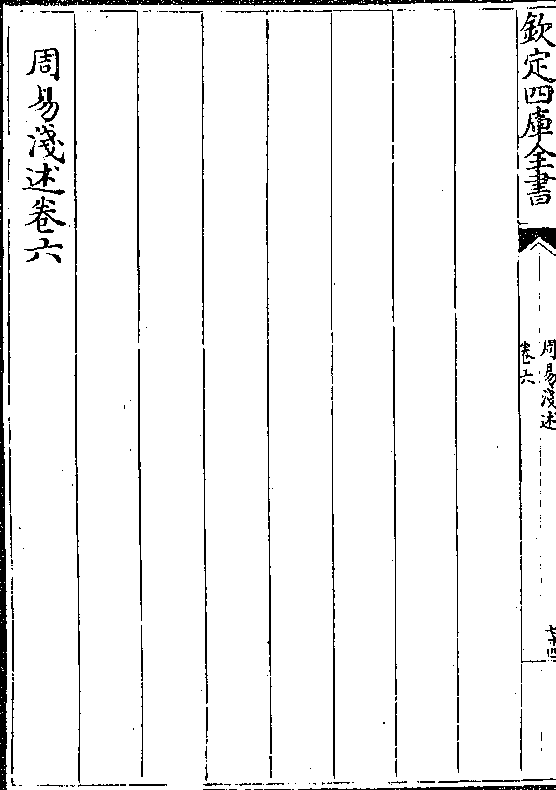 欽定四庫全書
周易淺述
卷六
七十四
周易淺述卷六